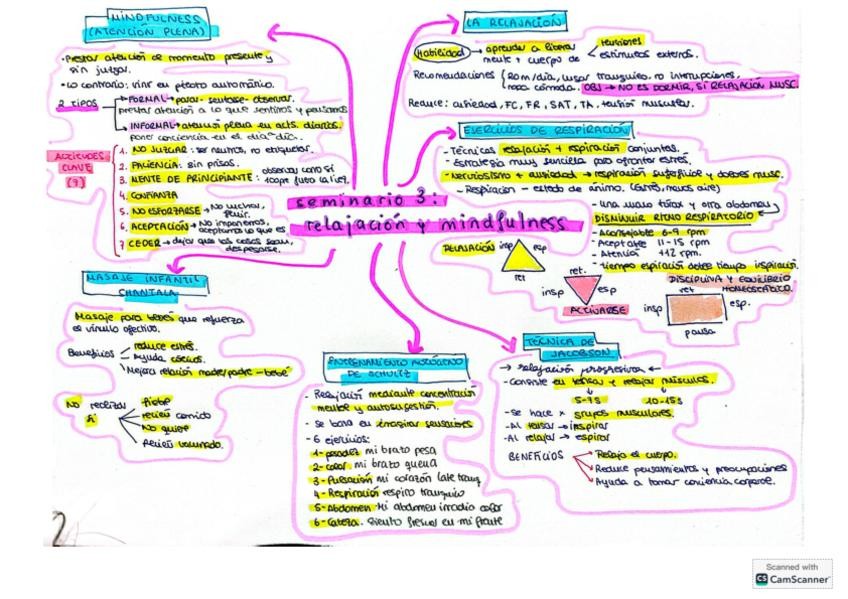 seminario 3:
relajación y mindfulness
MINDFULNESS
(ATENCIÓN PLENA)
· Prestar atención de momento presente y
sin juzgar.
· Lo contrario: vivir en piloto automático.
2 TIPOS
FORMAL → parar - sentarse - observar.
prestar atención a lo que sentimos y pensamos
INFORMAL → atención plena en acts. diarias.
poner conciencia en el día a día.
ACTITUDES
CLAVE
(7)
1. NO JUZGAR: ser neutros, no etiquetar.
2. PACIENCIA: sin prisas.
3. MENTE DE PRINCIPIANTE: observar como si
fuera la 1ª vez.
4. CONFIANZA
5. NO ESFORZARSE → No luchar,
fluir.
6. ACEPTACIÓN → No imponemos,
aceptamos lo que es
7 CEDER → dejar que las cosas sean,
LA RELAJACIÓN
Habilidad → aprender a liberar
mente + cuerpo de
tensiones
estímulos externos.
Recomendaciones
20 m/día, lugar tranquilo, no interrupciones,
ropa cómoda. OBJ → NO ES DORMIR, SÍ RELAJACIÓN MUSC.
Reduce: ansiedad, FC, FR, SAT, TA, tensión muscular.
EJERCICIOS DE RESPIRACIÓN
- Técnicas relajación + respiración conjuntas.
- Estrategia muy sencilla para afrontar estrés.
- Nerviosismo + ansiedad → respiración superficial y dolores musc.
- Respiración - estado de ánimo.
- una mano tórax y otra abdomen
DISMINUIR RITMO RESPIRATORIO
- Aconsejable 6-9 rpm
- Aceptable 11-15 rpm
- Atención +12 rpm.
- tiempo espiración doble tiempo inspiración.
RELAJACIÓN
insp
esp
ret
ret.
insp
esp
ACTIVARSE
DISCIPLINA Y EQUILIBRIO
HOMEOSTÁTICO.
ret
insp
esp.
pausa
MASAJE INFANTIL
SHANTALA
Masaje para bebés que refuerza
el vínculo afectivo.
Beneficios
reduce estrés.
Ayuda cólicos.
Mejora relación madre/padre - bebé
No realizar
si
fiebre
recién comido
No quiere
Recién vacunado.
ENTRENAMIENTO AUTÓGENO
DE SCHULTZ
- Relajación mediante concentración
mental y autosugestión.
- Se basa en imaginar sensaciones
- 6 ejercicios:
1- pesadez mi brazo pesa
2- calor mi brazo quema
3- Pulsación mi corazón late tranq
4- Respiración respiro tranquilo
5- Abdomen Mi abdomen irradia calor
6- Cabeza. Siento frescor en mi frente
TÉCNICA DE
JACOBSON
→ relajación progresiva ←
- Consiste en tensar y relajar músculos.
5-7s
10-15s
- Se hace x grupos musculares.
- Al tensar → inspirar
- Al relajar → espirar
BENEFICIOS
Relaja el cuerpo.
Reduce pensamientos y preocupaciones
Ayuda a tomar conciencia corporal.
2
Scanned with
CS CamScanner